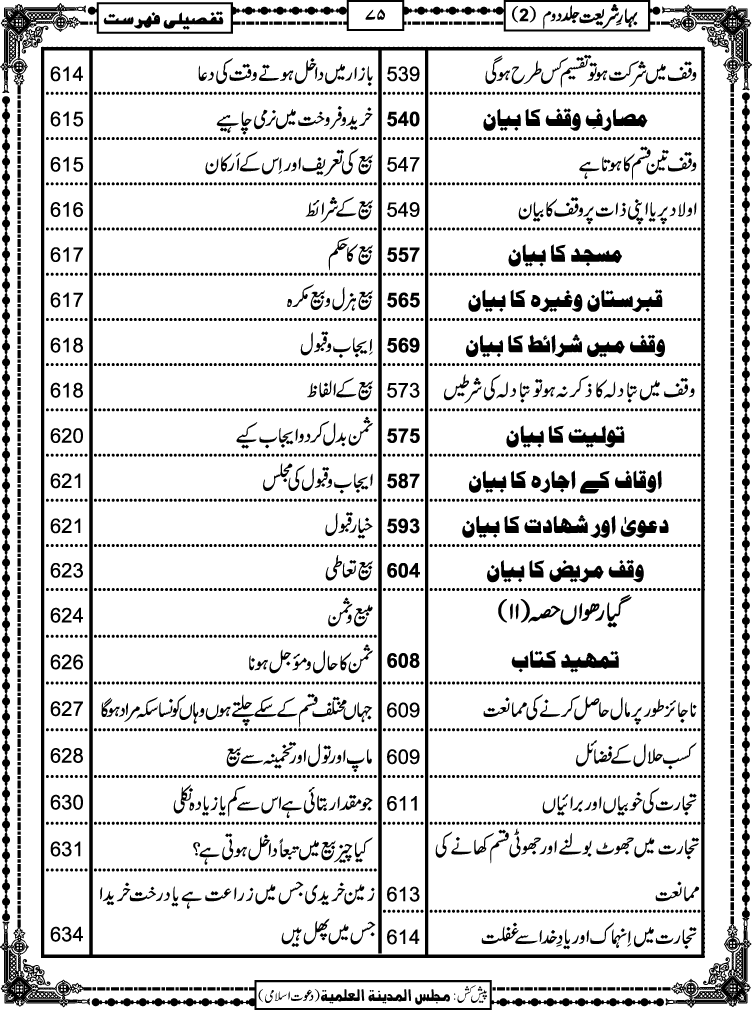 بہارِ شریعت جلد دوم (2)
۷۵
تفصیلی فہرست
وقف میں شرکت ہو تو تقسیم کس طرح ہوگی 539
مصارفِ وقف کا بیان 540
وقف تین قسم کا ہوتا ہے 547
اولاد پر یا اپنی ذات پر وقف کا بیان 549
مسجد کا بیان 557
قبرستان وغیرہ کا بیان 565
وقف میں شرائط کا بیان 569
وقف میں تبادلہ کا ذکر نہ ہو تو تبادلہ کی شرطیں 573
تولیت کا بیان 575
اوقاف کے اجارہ کا بیان 587
دعویٰ اور شہادت کا بیان 593
وقف مریض کا بیان 604
گیارھواں حصہ (۱۱)
تمہید کتاب 608
ناجائز طور پر مال حاصل کرنے کی ممانعت 609
کسب حلال کے فضائل 609
تجارت کی خوبیاں اور برائیاں 611
تجارت میں جھوٹ بولنے اور جھوٹی قسم کھانے کی
ممانعت 613
تجارت میں اِنہماک اور یادِ خدا سے غفلت 614
بازار میں داخل ہوتے وقت کی دعا 614
خرید و فروخت میں نرمی چاہیے 615
بیع کی تعریف اور اِس کے اَرکان 615
بیع کے شرائط 616
بیع کا حکم 617
بیع ہزل و بیع مکرہ 617
اِیجاب و قبول 618
بیع کے الفاظ 618
ثمن بدل کر دو ایجاب کیے 620
ایجاب و قبول کی مجلس 621
خیار قبول 621
بیع تعاطی 623
مبیع و ثمن 624
ثمن کا حال و مؤجل ہونا 626
جہاں مختلف قسم کے سکے چلتے ہوں وہاں کونسا سکہ مراد ہوگا 627
ماپ اور تول اور تخمینہ سے بیع 628
جو مقدار بتائی ہے اس سے کم یا زیادہ نکلی 630
کیا چیز بیع میں تبعاً داخل ہوتی ہے؟ 631
زمین خریدی جس میں زراعت ہے یا درخت خریدا
جس میں پھل ہیں 634
پیش کش: مجلس المدینۃ العلمیۃ (دعوت اسلامی)